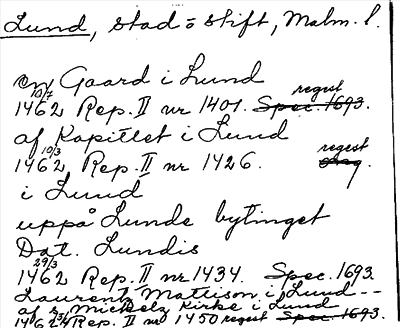 Lund, stad o stift, Malm. l.
en Gaard i Lund
10/7 regest
1462 Rep. II nr 1401. Spec. 1693.
af Kapitlet i Lund
10/3 regest
1462 Rep. II nr 1426.
i Lund
uppå Lunde bytinget
Dat. Lundis
29/3
1462 Rep. II nr 1434. Spec. 1693.
Laurentz Mattison i Lund --
af s. Mickels Kirke i Lund
1462 Rep. II nr 1450 regest Spec. 1693.